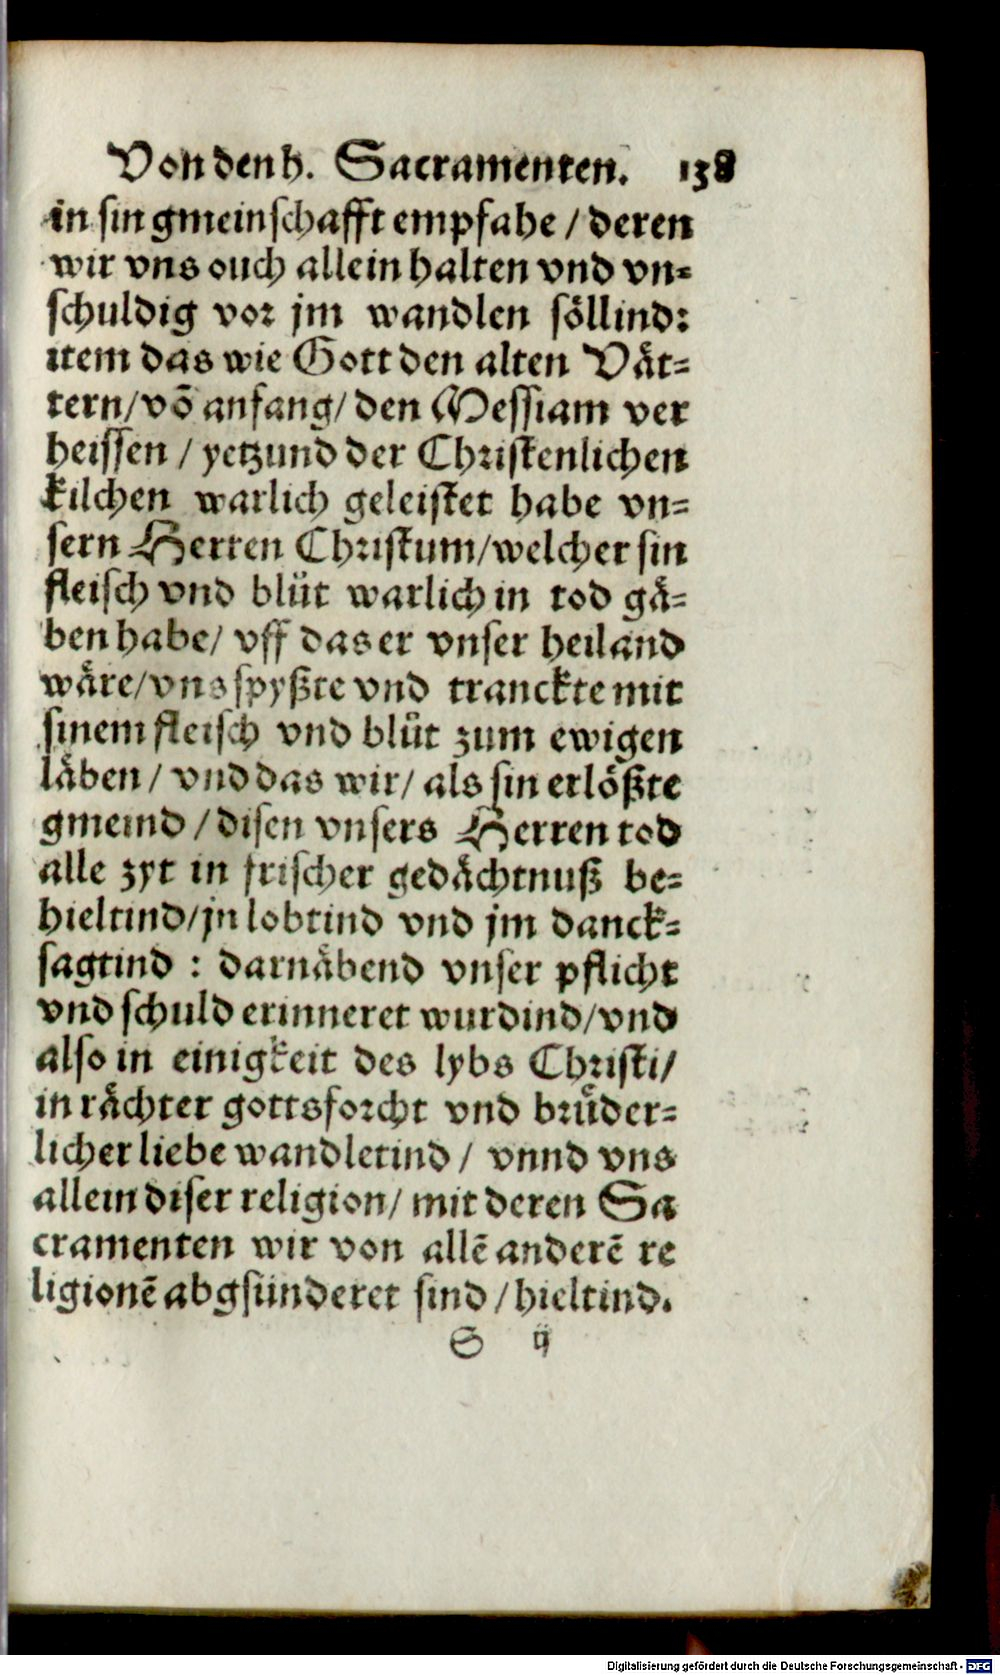 Von den h. Sacramenten. 138
in sin gmeinschafft empfahe / deren
wir vns ouch allein halten vnd vn⸗
schuldig vor jm wandlen söllind:
item das wie Gott den alten Vaͤt⸗
tern/võ anfang/ den Messiam ver
heissen / yetzund der Christenlichen
kilchen warlich geleistet habe vn⸗
sern Herren Christum/welcher sin
fleisch vnd bluͤt warlich in tod gaͤ⸗
ben habe/ vff das er vnser heiland
waͤre/vns spyßte vnd tranckte mit
sinem fleisch vnd blůt zum ewigen
laͤben / vnd das wir/ als sin erloͤßte
gmeind / disen vnsers Herren tod
alle zyt in frischer gedaͤchtnuß be⸗
hieltind/jn lobtind vnd jm danck⸗
sagtind : darnaͤbend vnser pflicht
vnd schuld erinneret wurdind/vnd
also in einigkeit des lybs Christi/
in raͤchter gottsforcht vnd bruͤder⸗
licher liebe wandletind / vnnd vns
allein diser religion/ mit deren Sa
cramenten wir von allẽ anderẽ re
ligionẽ abgsünderet sind / hieltind.
S ij
Digitalisierung gefördert durch die Deutsche Forschungsgemeinschaft - DFG